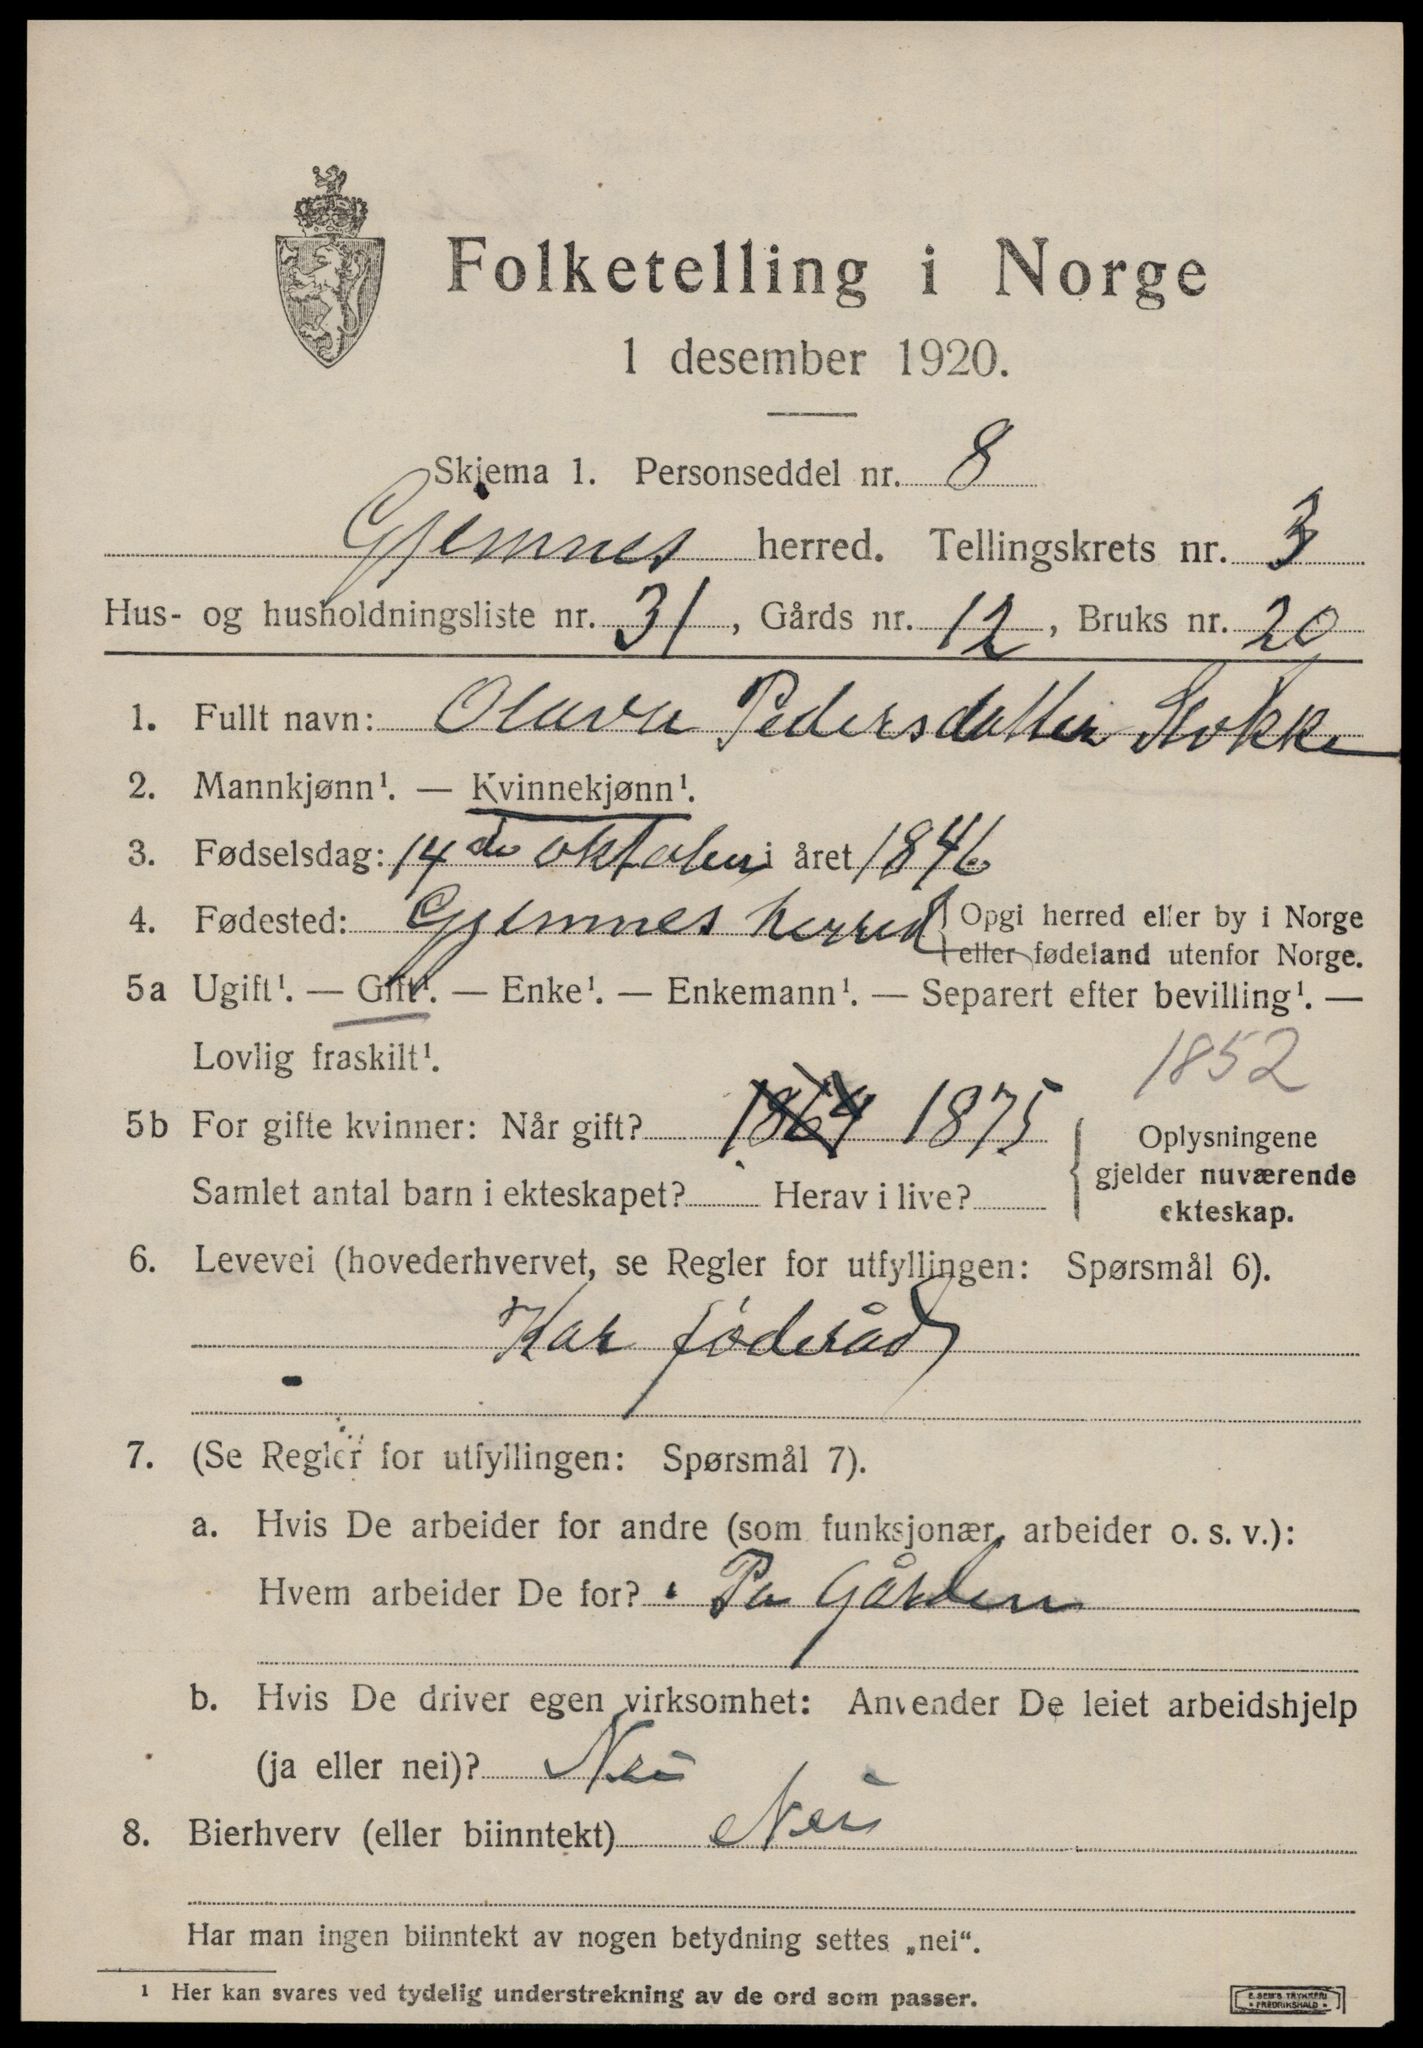 Folketelling i Norge
1 desember 1920.
Skjema 1. Personseddel nr. 8
Gjemnes herred. Tellingskrets nr. 3
Hus- og husholdningsliste nr. 31, Gårds nr. 12, Bruks nr. 20
1. Fullt navn: Olava Pedersdatter Stokke
2. Mannkjønn¹. — Kvinnekjønn¹.
3. Fødselsdag: 14de oktober i året 1846
4. Fødested: Gjemnes herred { Opgi herred eller by i Norge
eller fødeland utenfor Norge.
5a Ugift¹. — Gift¹. — Enke¹. — Enkemann¹. — Separert efter bevilling¹. —
Lovlig fraskilt¹.
1852
5b For gifte kvinner: Når gift? 1864 1875
Samlet antal barn i ekteskapet? Herav i live?
{ Oplysningene
gjelder nuværende
ekteskap.
6. Levevei (hovederhvervet, se Regler for utfyllingen: Spørsmål 6).
Har føderåd
7. (Se Regler for utfyllingen: Spørsmål 7).
a. Hvis De arbeider for andre (som funksjonær, arbeider o. s. v.):
Hvem arbeider De for? Pa Gården
b. Hvis De driver egen virksomhet: Anvender De leiet arbeidshjelp
(ja eller nei)? Nei
8. Bierhverv (eller biinntekt) Nei
Har man ingen biinntekt av nogen betydning settes „nei“.
¹ Her kan svares ved tydelig understrekning av de ord som passer.
E. SEM'S TRYKKERI
• FREDRIKSHALD •